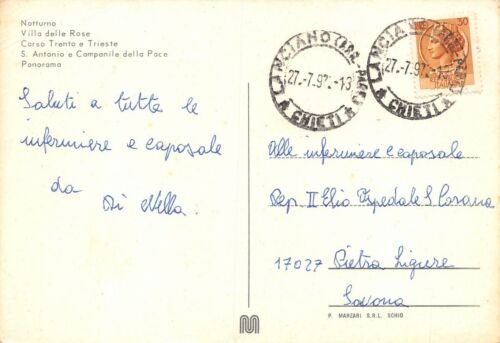 Notturno
Villa delle Rose
Corso Trento e Trieste
S. Antonio e Campanile della Pace
Panorama
Saluti a tutte le
infermiere e caposale
da
Di Nella.
LANCIANO (ARR. - PART.)
27.-7.97 -13
A CHIETI A
LANCIANO (ARR. - PART.)
27.-7.97 -13
A CHIETI A
30
Alle infermiere e caposale
Rep. II Elio Ospedale S. Corona
17027 Pietra Ligure
Savona
P. MARZARI S.R.L. SCHIO